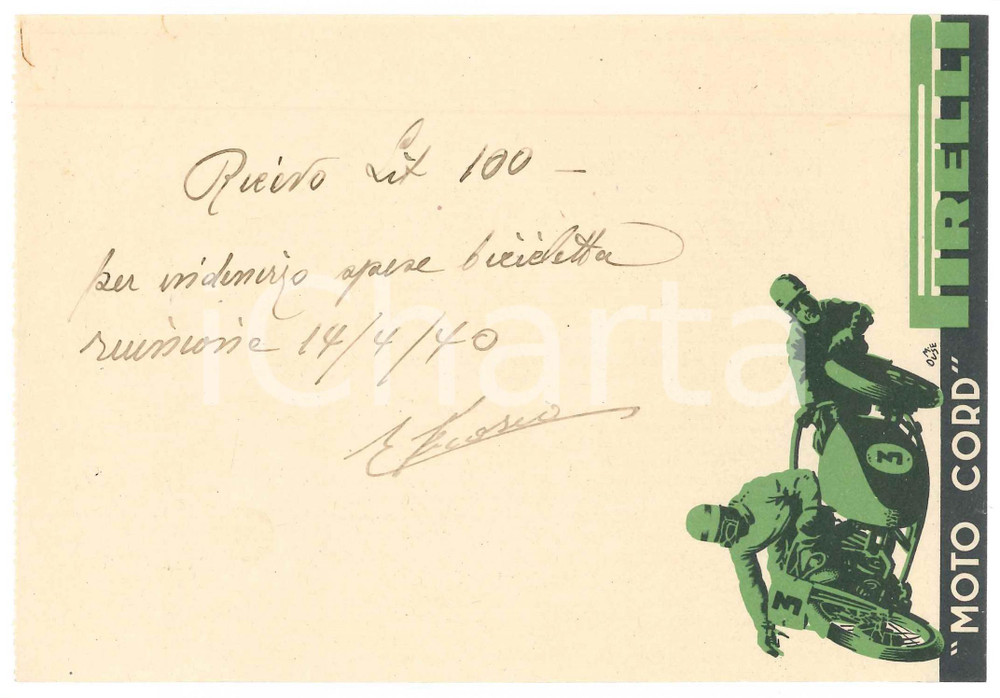 Ricevo Lit 100 —
per indenizo spese bicicletta
riunione 14/4/40
PIRELLI
"MOTO CORD"
3
3
iCharta